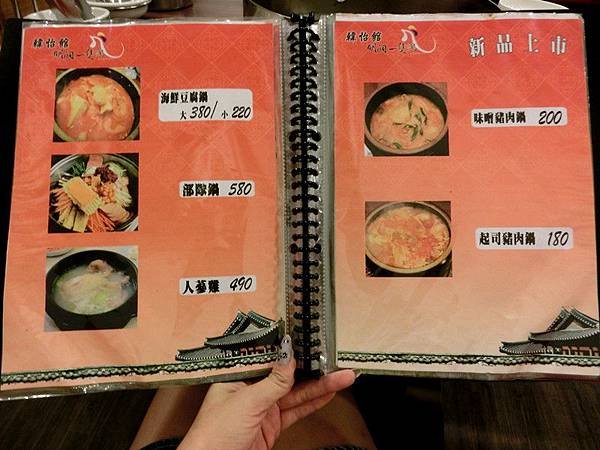 韓怡館
海鮮豆腐鍋
大 380/小 220
部隊鍋 580
人蔘雞 490
韓怡館
新品上市
味噌豬肉鍋 200
起司豬肉鍋 180